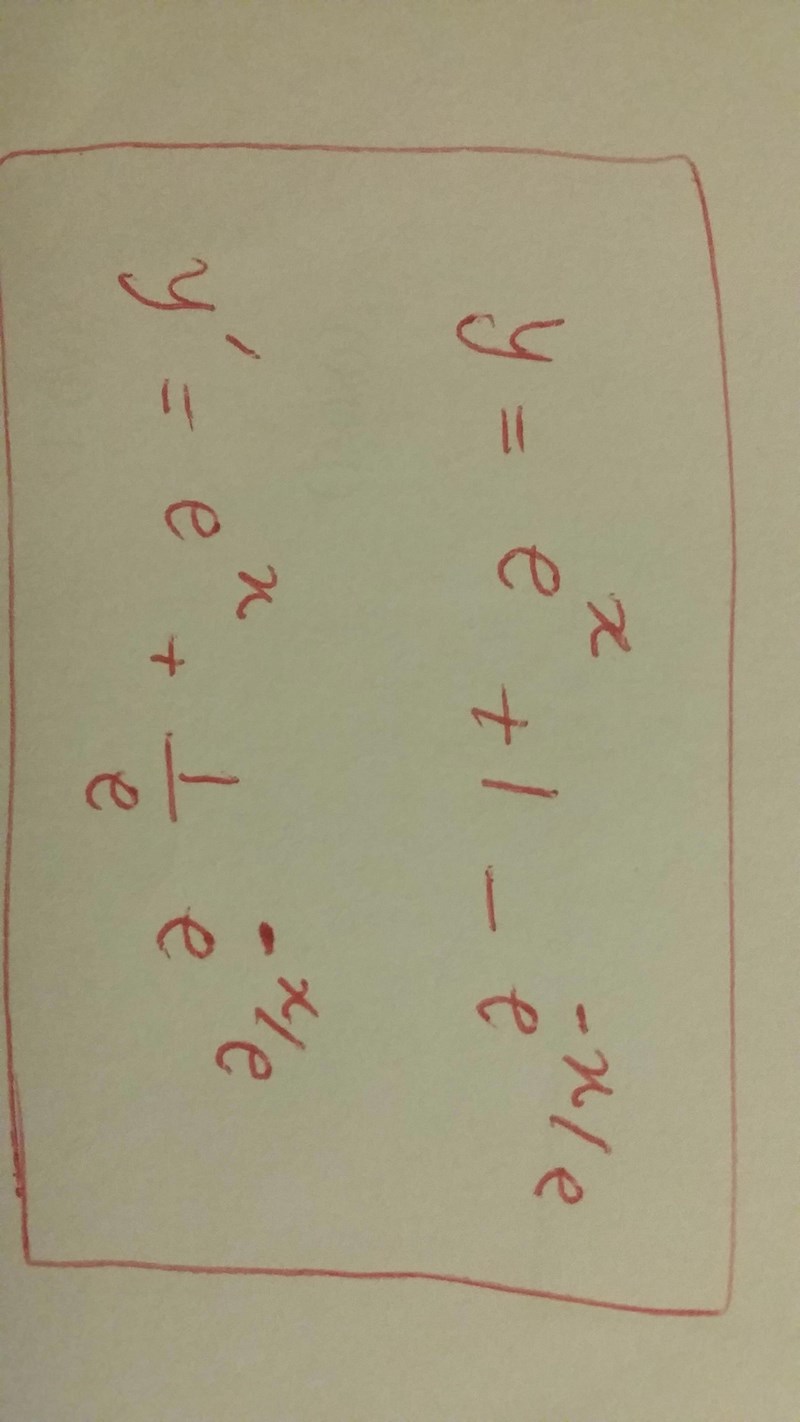 y = e^x + 1 - e^{-x/e}
y' = e^x + \frac{1}{e} e^{-x/e}